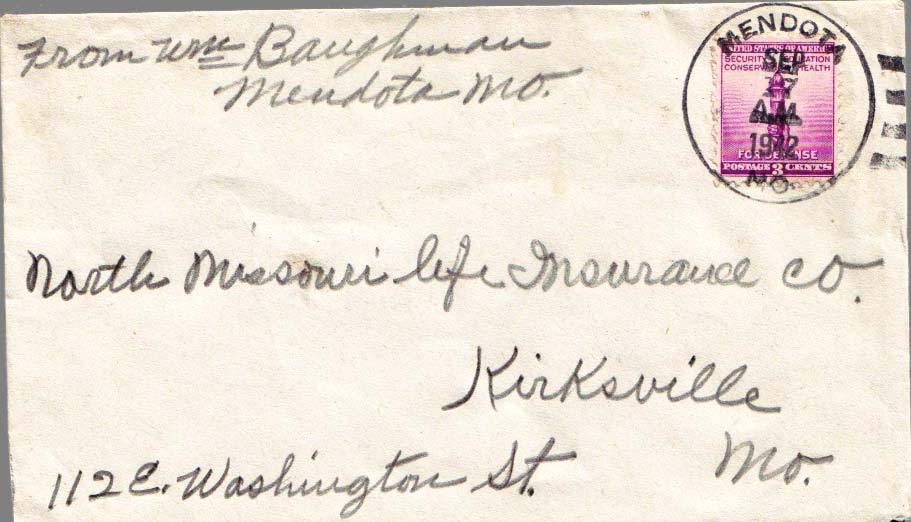 From Wm Baughman
Mendota Mo.
MENDOTA
SEP
A.M.
1942
MO.
UNITED STATES OF AMERICA
SECURITY EDUCATION
CONSERVATION HEALTH
FOR DEFENSE
POSTAGE 3 CENTS
North Missouri life Insurance co.
Kirksville
Mo.
112 E. Washington St.